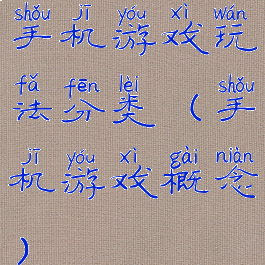 shǒu jī yóu xì wán
手机游戏玩
fǎ fēn lèi shǒu
法分类（手
jī yóu xì gài niàn
机游戏概念
）